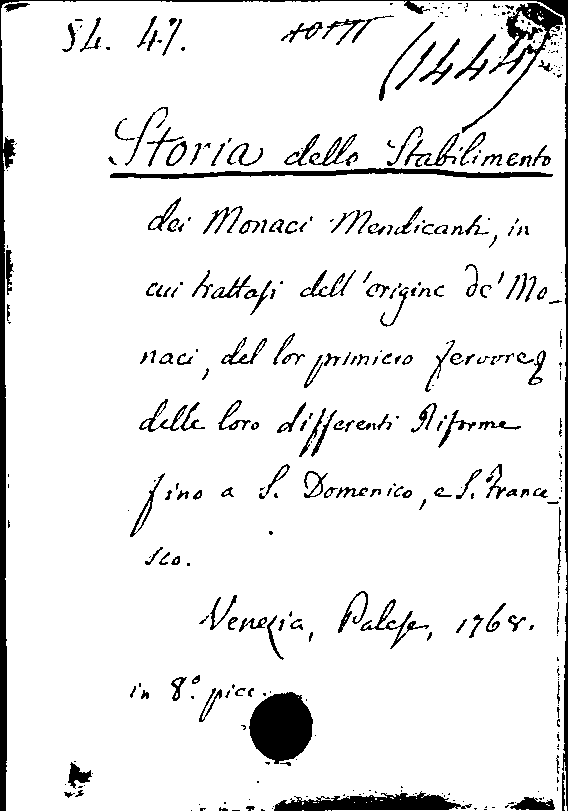 54. 47.
(1444)
Storia dello Stabilimento
dei Monaci Mendicanti, in
cui trattasi dell'origine de' Mo-
naci, del lor primiero fervore,
delle loro differenti Riforme
fino a S. Domenico, e S. France-
sco.
Venezia, Palese, 1768.
in 8.° picc.